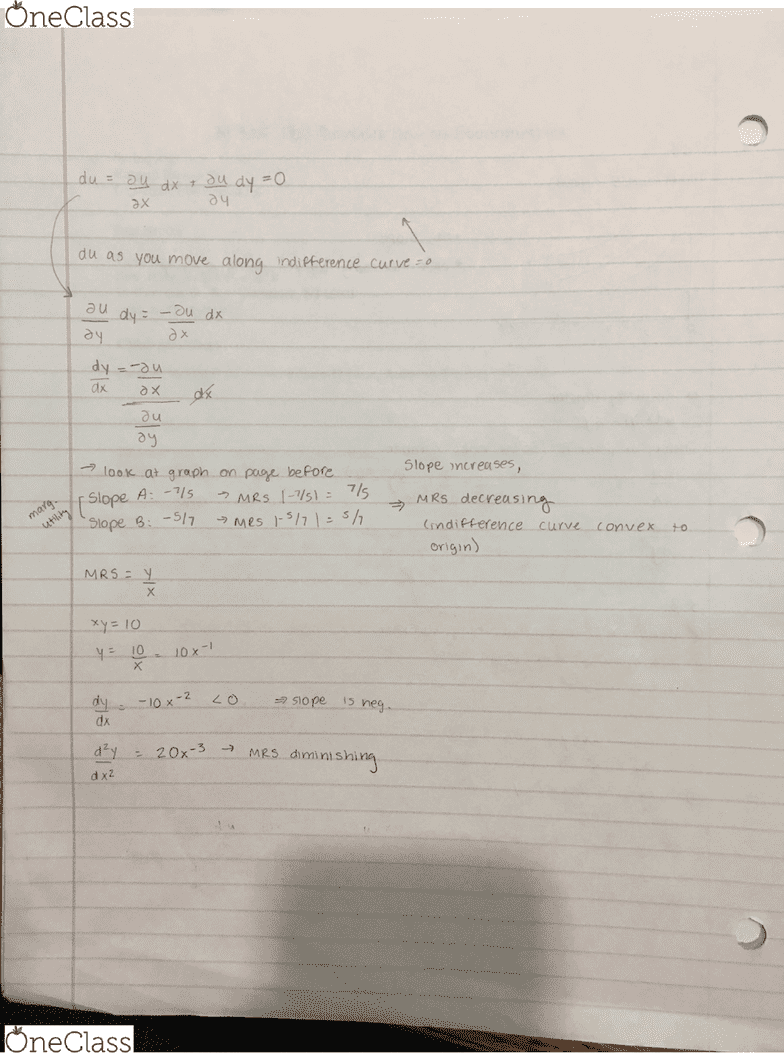 OneClass
du = ∂u/∂x dx + ∂u/∂y dy = 0
du as you move along indifference curve = 0
∂u/∂y dy = -∂u/∂x dx
dy/dx = -∂u/∂x / ∂u/∂y dx
→ look at graph on page before
marg. utility
Slope A: -7/5 → MRS |-7/5| = 7/5
Slope B: -5/7 → MRS |-5/7| = 5/7
Slope increases,
⇒ MRS decreasing
(indifference curve convex to
origin)
MRS = y/x
xy = 10
y = 10/x = 10x⁻¹
dy/dx = -10x⁻² < 0 ⇒ slope is neg.
d²y/dx² = 20x⁻³ → MRS diminishing
OneClass